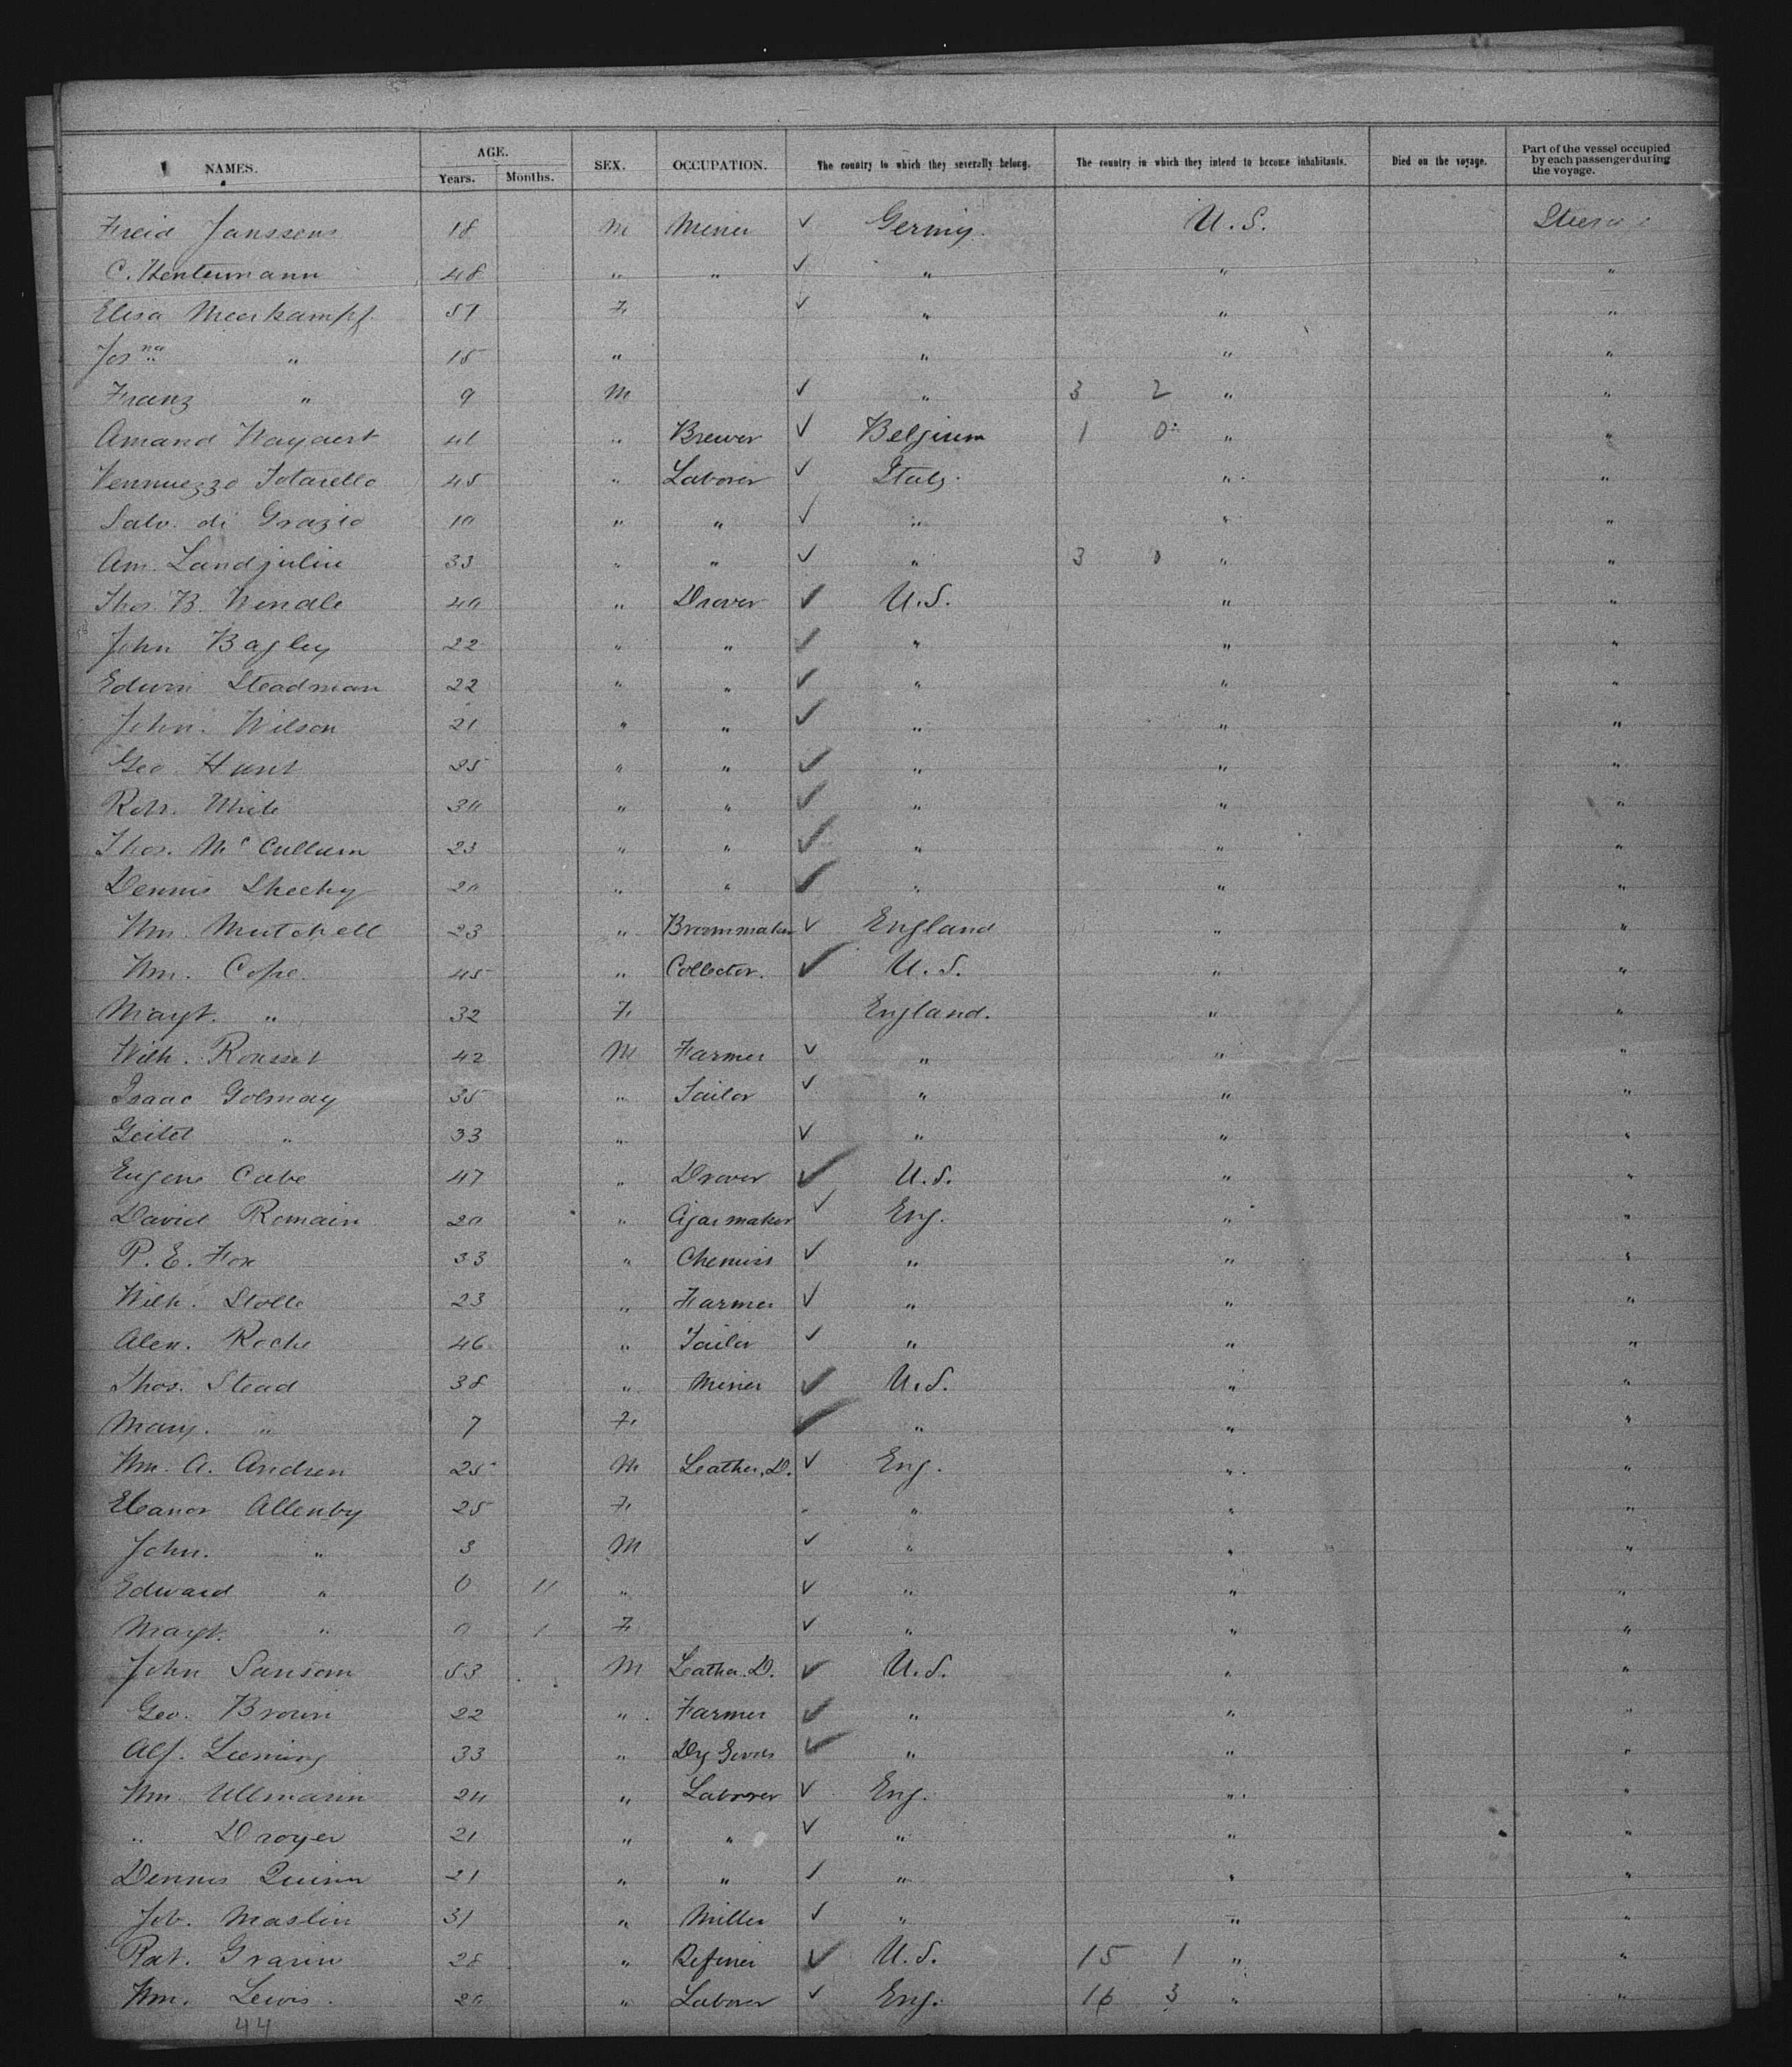 NAMES. AGE. Years. Months. SEX. OCCUPATION. The country to which they severally belong. The country in which they intend to become inhabitants. Died on the voyage. Part of the vessel occupied by each passenger during the voyage.
Janssens 18 M Miner ✓ Germny. U. S.
C. 48 " " ✓ " " "
Elisa Meerkampf 51 F ✓ " " "
Josna " 15 " " " "
Franz " 9 M ✓ " 3 2 " "
Amand 41 " Brewer ✓ Belgium 1 0 " "
45 " Laborer ✓ Italy. " "
Salv. di Grazio 10 " " ✓ " " "
Am. 33 " " ✓ " 3 0 " "
Thos. B. Windle 40 " Drover ✓ U.S. " "
John Bagley 22 " " ✓ " " "
Edwin Steadman 22 " " ✓ " " "
John. Wilson 21 " " ✓ " " "
Geo. Hunt 25 " " ✓ " " "
Robt. White 30 " " ✓ " " "
Thos. McCullum 23 " " ✓ " " "
Dennis Sheehy 20 " " ✓ " " "
Wm. Mutchell 23 " Broommaker ✓ England " "
Wm. Cope. 45 " Collector. ✓ U.S. " "
Magt. " 32 F England. " "
Wilh. Rousset 42 M Farmer ✓ " " "
Isaac Golmay 35 " Tailor ✓ " " "
Geitel " 33 " ✓ " " "
Eugene Cabe 47 " Drover ✓ U.S. " "
David Romain 20 " Cigarmaker ✓ Eng. " "
P. E. Fox 33 " Chemist ✓ " " "
Wilh. Stolle 23 " Farmer ✓ " " "
Alex. Roche 46 " Tailor ✓ " " "
Thos. Stead 38 " Miner ✓ U.S. " "
Mary. " 7 F ✓ " " "
Wm. A. Andren 25 M Leather, D. ✓ Eng. " "
Eleanor Allenby 25 F " " "
John. " 3 M ✓ " " "
Edward " 0 11 " ✓ " " "
Magt. " 0 1 F ✓ " " "
John Sansom 53 M Leather. D. ✓ U.S. " "
Geo. Brown 22 " Farmer ✓ " " "
Alf. Leeming 33 " Dry Goods ✓ " " "
Wm. Ullmann 24 " Laborer ✓ Eng. " "
" Droyer 21 " " ✓ " " "
Dennis Quinn 21 " " ✓ " " "
Job. Maslin 31 " Miller ✓ " " "
Pat. 28 " Refiner ✓ U.S. 15 1 " "
Wm. Lewis. 20 " Laborer ✓ Eng. 16 3 " "
44